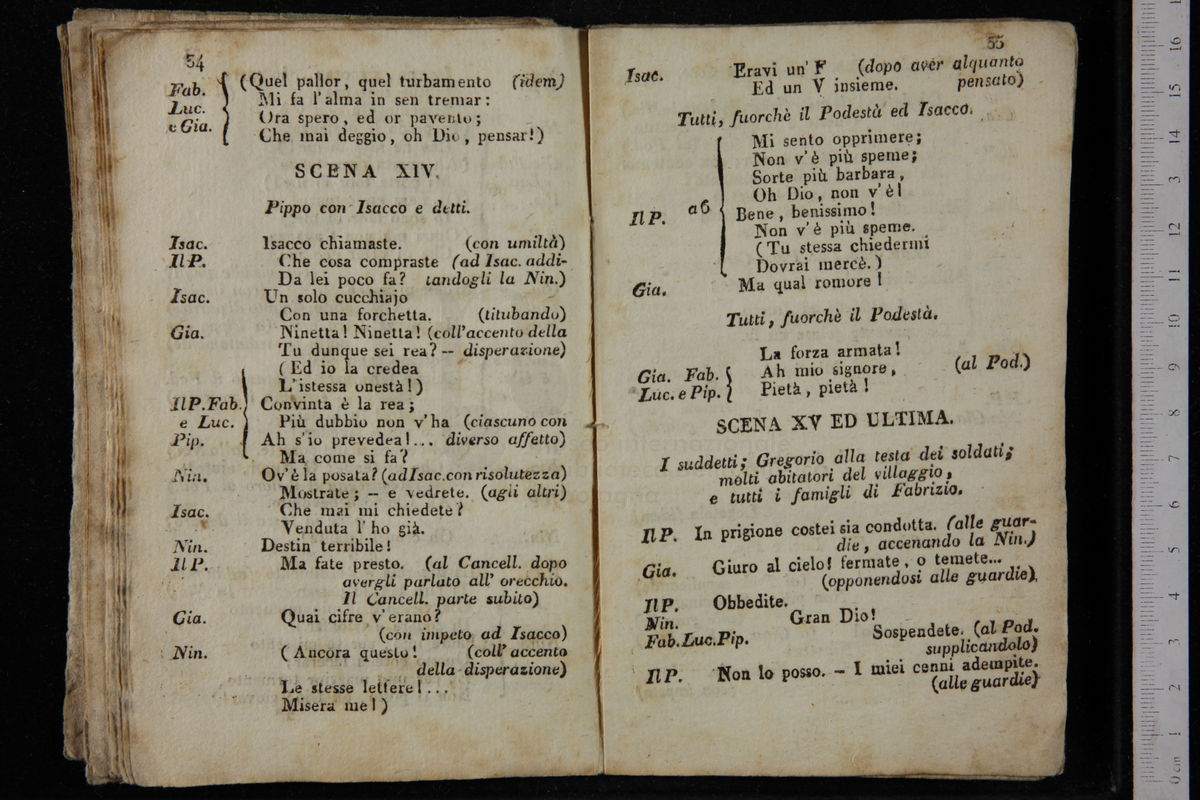 34
Fab. (Quel pallor, quel turbamento (idem)
Luc. Mi fa l'alma in sen tremar:
e Gia. Ora spero, ed or pavento;
Che mai deggio, oh Dio, pensar!)
SCENA XIV.
Pippo con Isacco e detti.
Isac. Isacco chiamaste. (con umiltà)
Il P. Che cosa compraste (ad Isac. addi-
Da lei poco fa? tandogli la Nin.)
Isac. Un solo cucchiajo
Con una forchetta. (titubando)
Gia. Ninetta! Ninetta! (coll'accento della
Tu dunque sei rea? -- disperazione)
(Ed io la credea
L'istessa onestà!)
Il P. Fab. Convinta è la rea;
e Luc. Più dubbio non v'ha (ciascuno con
Pip. Ah s'io prevedea!... diverso affetto)
Ma come si fa?
Nin. Ov'è la posata? (ad Isac. con risolutezza)
Mostrate; -- e vedrete. (agli altri)
Isac. Che mai mi chiedete?
Venduta l'ho già.
Nin. Destin terribile!
Il P. Ma fate presto. (al Cancell. dopo
avergli parlato all' orecchio.
Il Cancell. parte subito)
Gia. Quai cifre v'erano?
(con impeto ad Isacco)
Nin. (Ancora questo! (coll' accento
della disperazione)
Le stesse lettere!...
Misera me!)
35
Isac. Eravi un' F (dopo aver alquanto
Ed un V insieme. pensato)
Tutti, fuorchè il Podestà ed Isacco.
Mi sento opprimere;
Non v'è più speme;
Sorte più barbara,
Oh Dio, non v'è!
Il P. a6 Bene, benissimo!
Non v'è più speme.
(Tu stessa chiedermi
Dovrai mercè.)
Gia. Ma qual romore!
Tutti, fuorchè il Podestà.
La forza armata!
Gia. Fab. Ah mio signore, (al Pod.)
Luc. e Pip. Pietà, pietà!
SCENA XV ED ULTIMA.
I suddetti; Gregorio alla testa dei soldati;
molti abitatori del villaggio,
e tutti i famigli di Fabrizio.
Il P. In prigione costei sia condotta. (alle guar-
die, accenando la Nin.)
Gia. Giuro al cielo! fermate, o temete...
(opponendosi alle guardie)
Il P. Obbedite.
Nin. Gran Dio!
Fab. Luc. Pip. Sospendete. (al Pod.
supplicandolo)
Il P. Non lo posso. – I miei cenni adempite.
(alle guardie)
16
15
14
3
13
12
2
11
10
9
8
7
6
5
4
3
2
1
0 cm